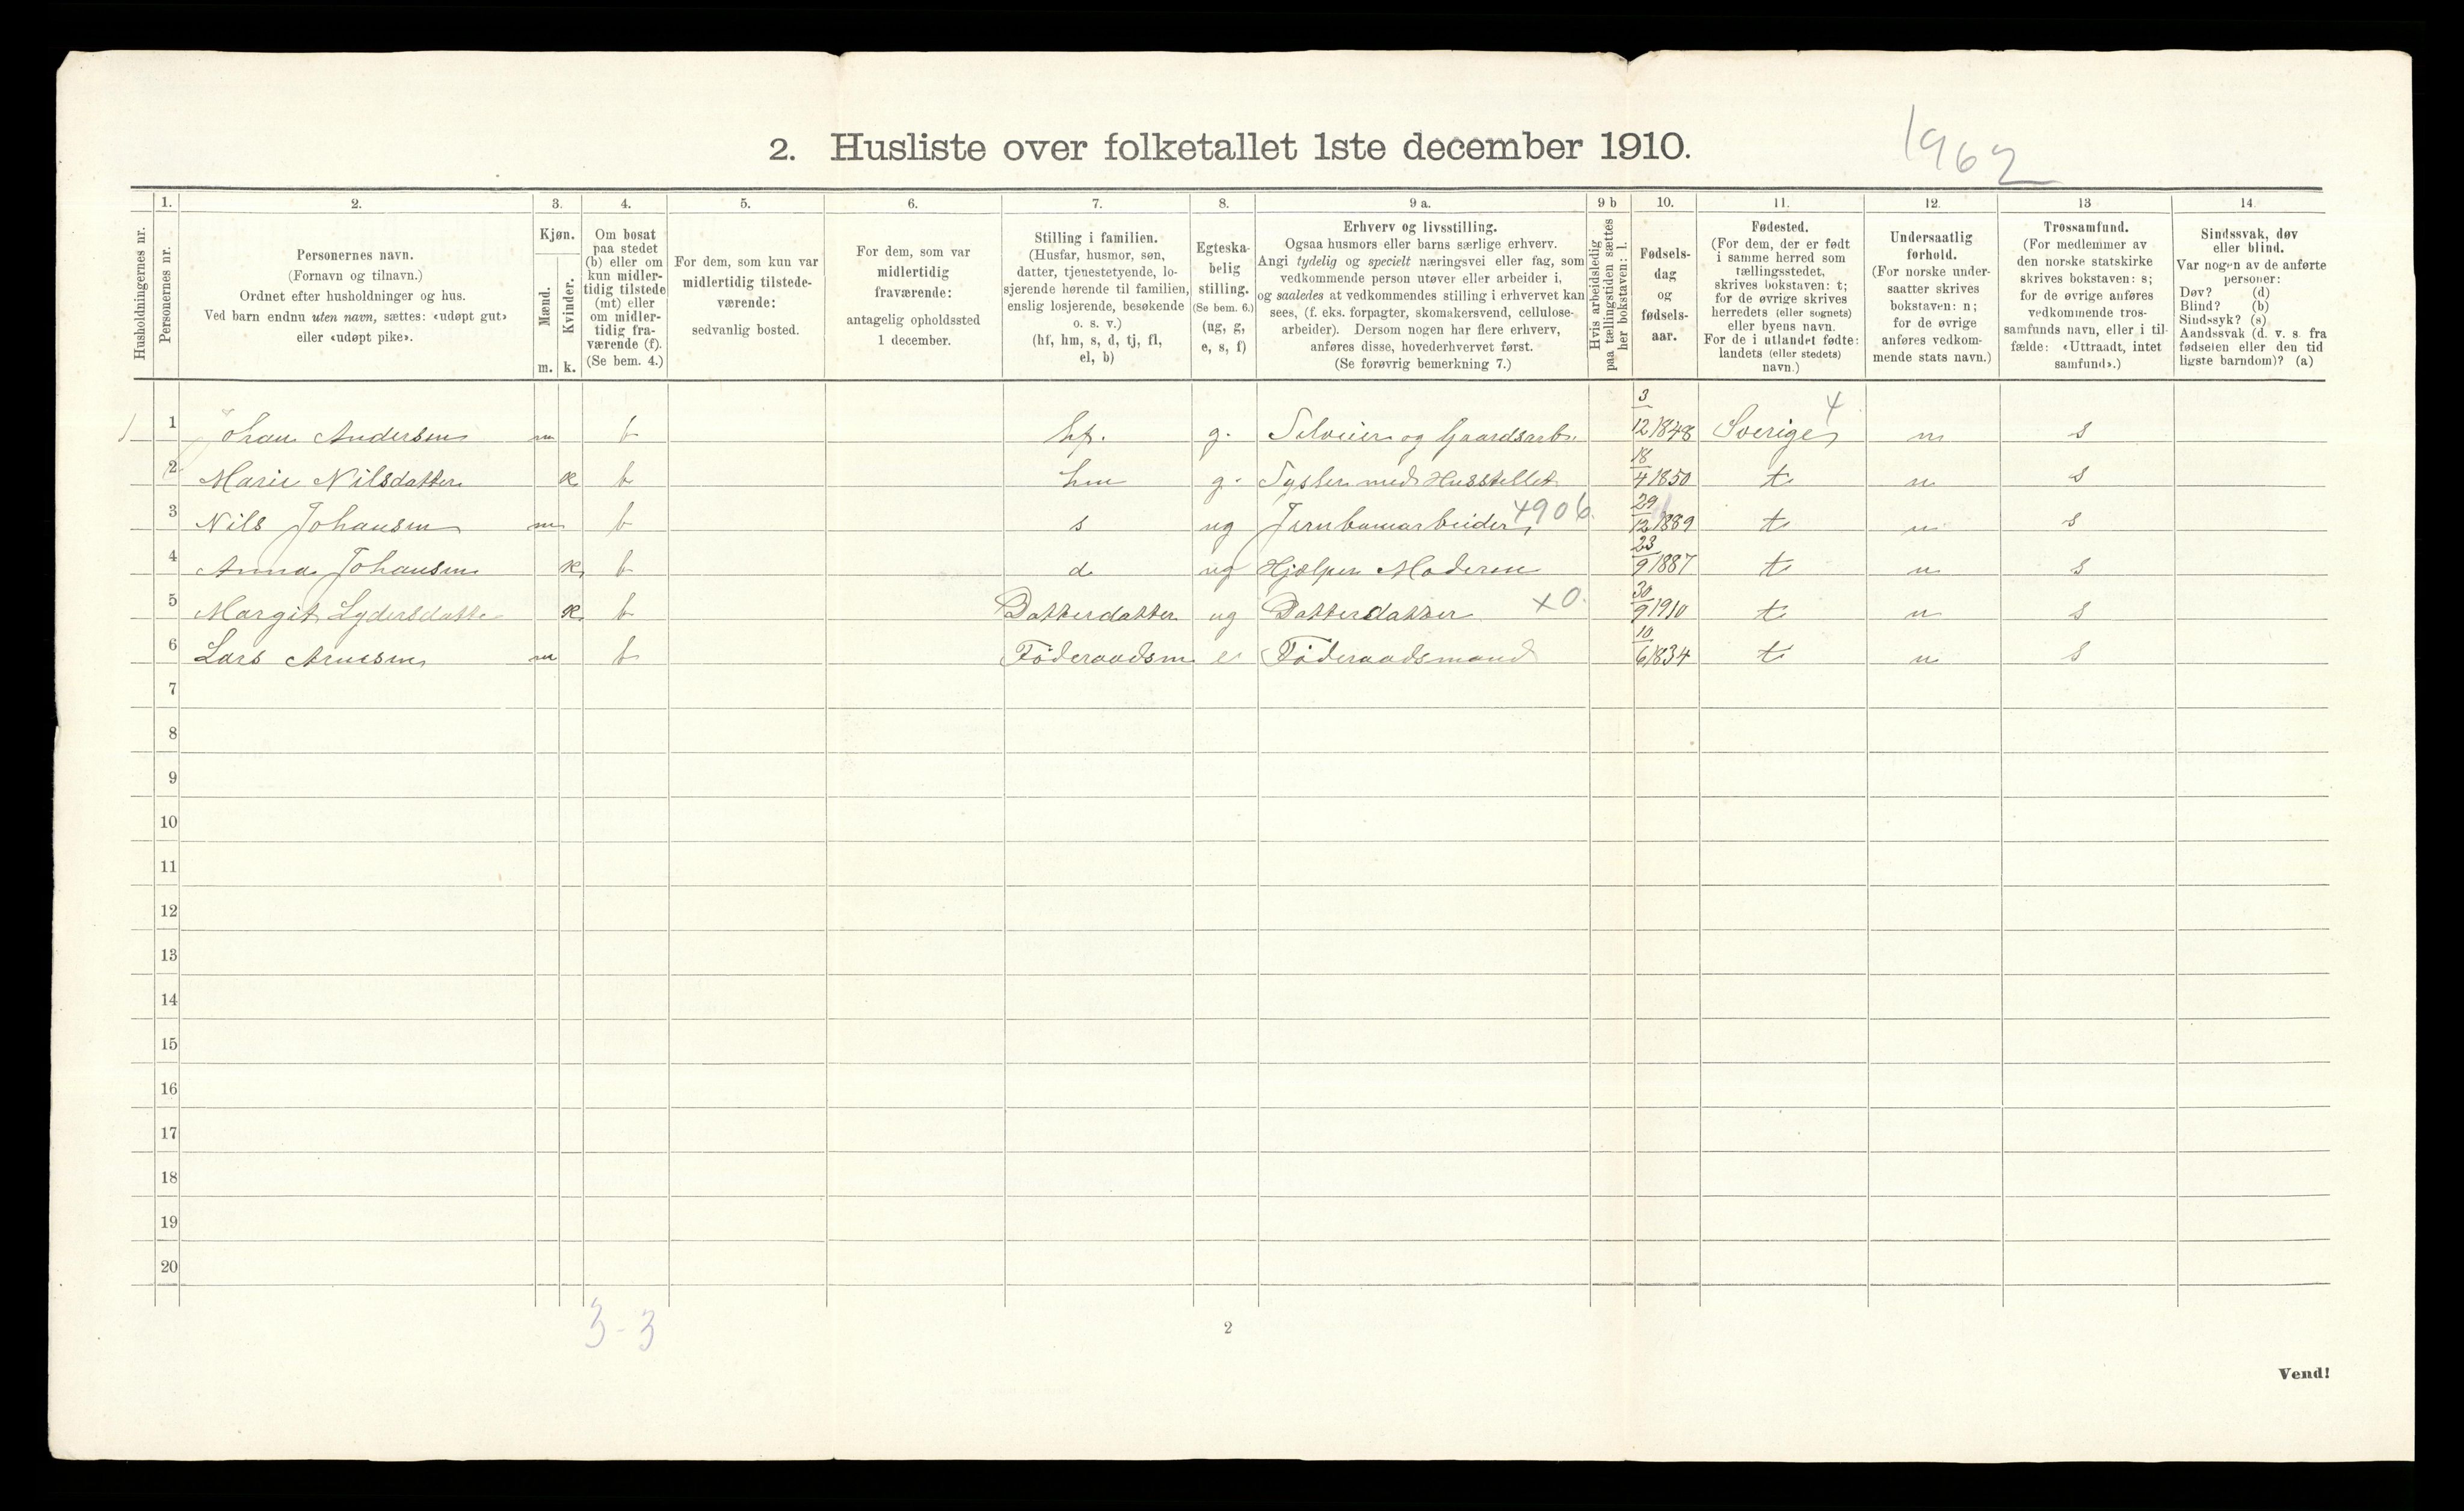 2. Husliste over folketallet 1ste december 1910.
1962
Husholdningernes nr.
1. Personernes nr.
2. Personernes navn.
(Fornavn og tilnavn.)
Ordnet efter husholdninger og hus.
Ved barn endnu uten navn, sættes: «udøpt gut»
eller «udøpt pike».
3. Kjøn.
Mænd. m.
Kvinder. k.
4. Om bosat
paa stedet
(b) eller om
kun midler-
tidig tilstede
(mt) eller
om midler-
tidig fra-
værende (f).
(Se bem. 4.)
5. For dem, som kun var
midlertidig tilstede-
værende:
sedvanlig bosted.
6. For dem, som var
midlertidig
fraværende:
antagelig opholdssted
1 december.
7. Stilling i familien.
(Husfar, husmor, søn,
datter, tjenestetyende, lo-
sjerende hørende til familien,
enslig losjerende, besøkende
o. s. v.)
(hf, hm, s, d, tj, fl,
el, b)
8. Egteska-
belig
stilling.
(Se bem. 6.)
(ug, g,
e, s, f)
9 a. Erhverv og livsstilling.
Ogsaa husmors eller barns særlige erhverv.
Angi tydelig og specielt næringsvei eller fag, som
vedkommende person utøver eller arbeider i,
og saaledes at vedkommendes stilling i erhvervet kan
sees, (f. eks. forpagter, skomakersvend, cellulose-
arbeider). Dersom nogen har flere erhverv,
anføres disse, hovederhvervet først.
(Se forøvrig bemerkning 7.)
9 b Hvis arbeidsledig
paa tællingstiden sættes
her bokstaven: l.
10. Fødsels-
dag
og
fødsels-
aar.
11. Fødested.
(For dem, der er født
i samme herred som
tællingsstedet,
skrives bokstaven: t;
for de øvrige skrives
herredets (eller sognets)
eller byens navn.
For de i utlandet fødte:
landets (eller stedets)
navn.)
12. Undersaatlig
forhold.
(For norske under-
saatter skrives
bokstaven: n;
for de øvrige
anføres vedkom-
mende stats navn.)
13 Trossamfund.
(For medlemmer av
den norske statskirke
skrives bokstaven: s;
for de øvrige anføres
vedkommende tros-
samfunds navn, eller i til-
fælde: «Uttraadt, intet
samfund».)
14. Sindssvak, døv
eller blind.
Var nogen av de anførte
personer:
Døv? (d)
Blind? (b)
Sindssyk? (s)
Aandssvak (d. v. s. fra
fødselen eller den tid
ligste barndom)? (a)
1 1 Johan Andersen m b hf. g. Selveier og Gaardsarb. 3/12 1848 Sverige 4 n s
2 Marie Nilsdatter k b hm g. Sysler med Husstellet 18/4 1850 t n s
3 Nils Johansen m b s ug Jernbanearbeider 4906. 29/12 1889 t n s
4 Anna Johansen k b d ug Hjælper Moderen 23/9 1887 t n s
5 Margit Lydersdatter k b Datterdatter ug Datterdatter x0. 30/9 1910 t n s
6 Lars Arnesen m b Föderaadsm e Föderaadsmand 10/6 1834 t n s
7
8
9
10
11
12
13
14
15
16
17
18
19
20
3-3
2
Vend!